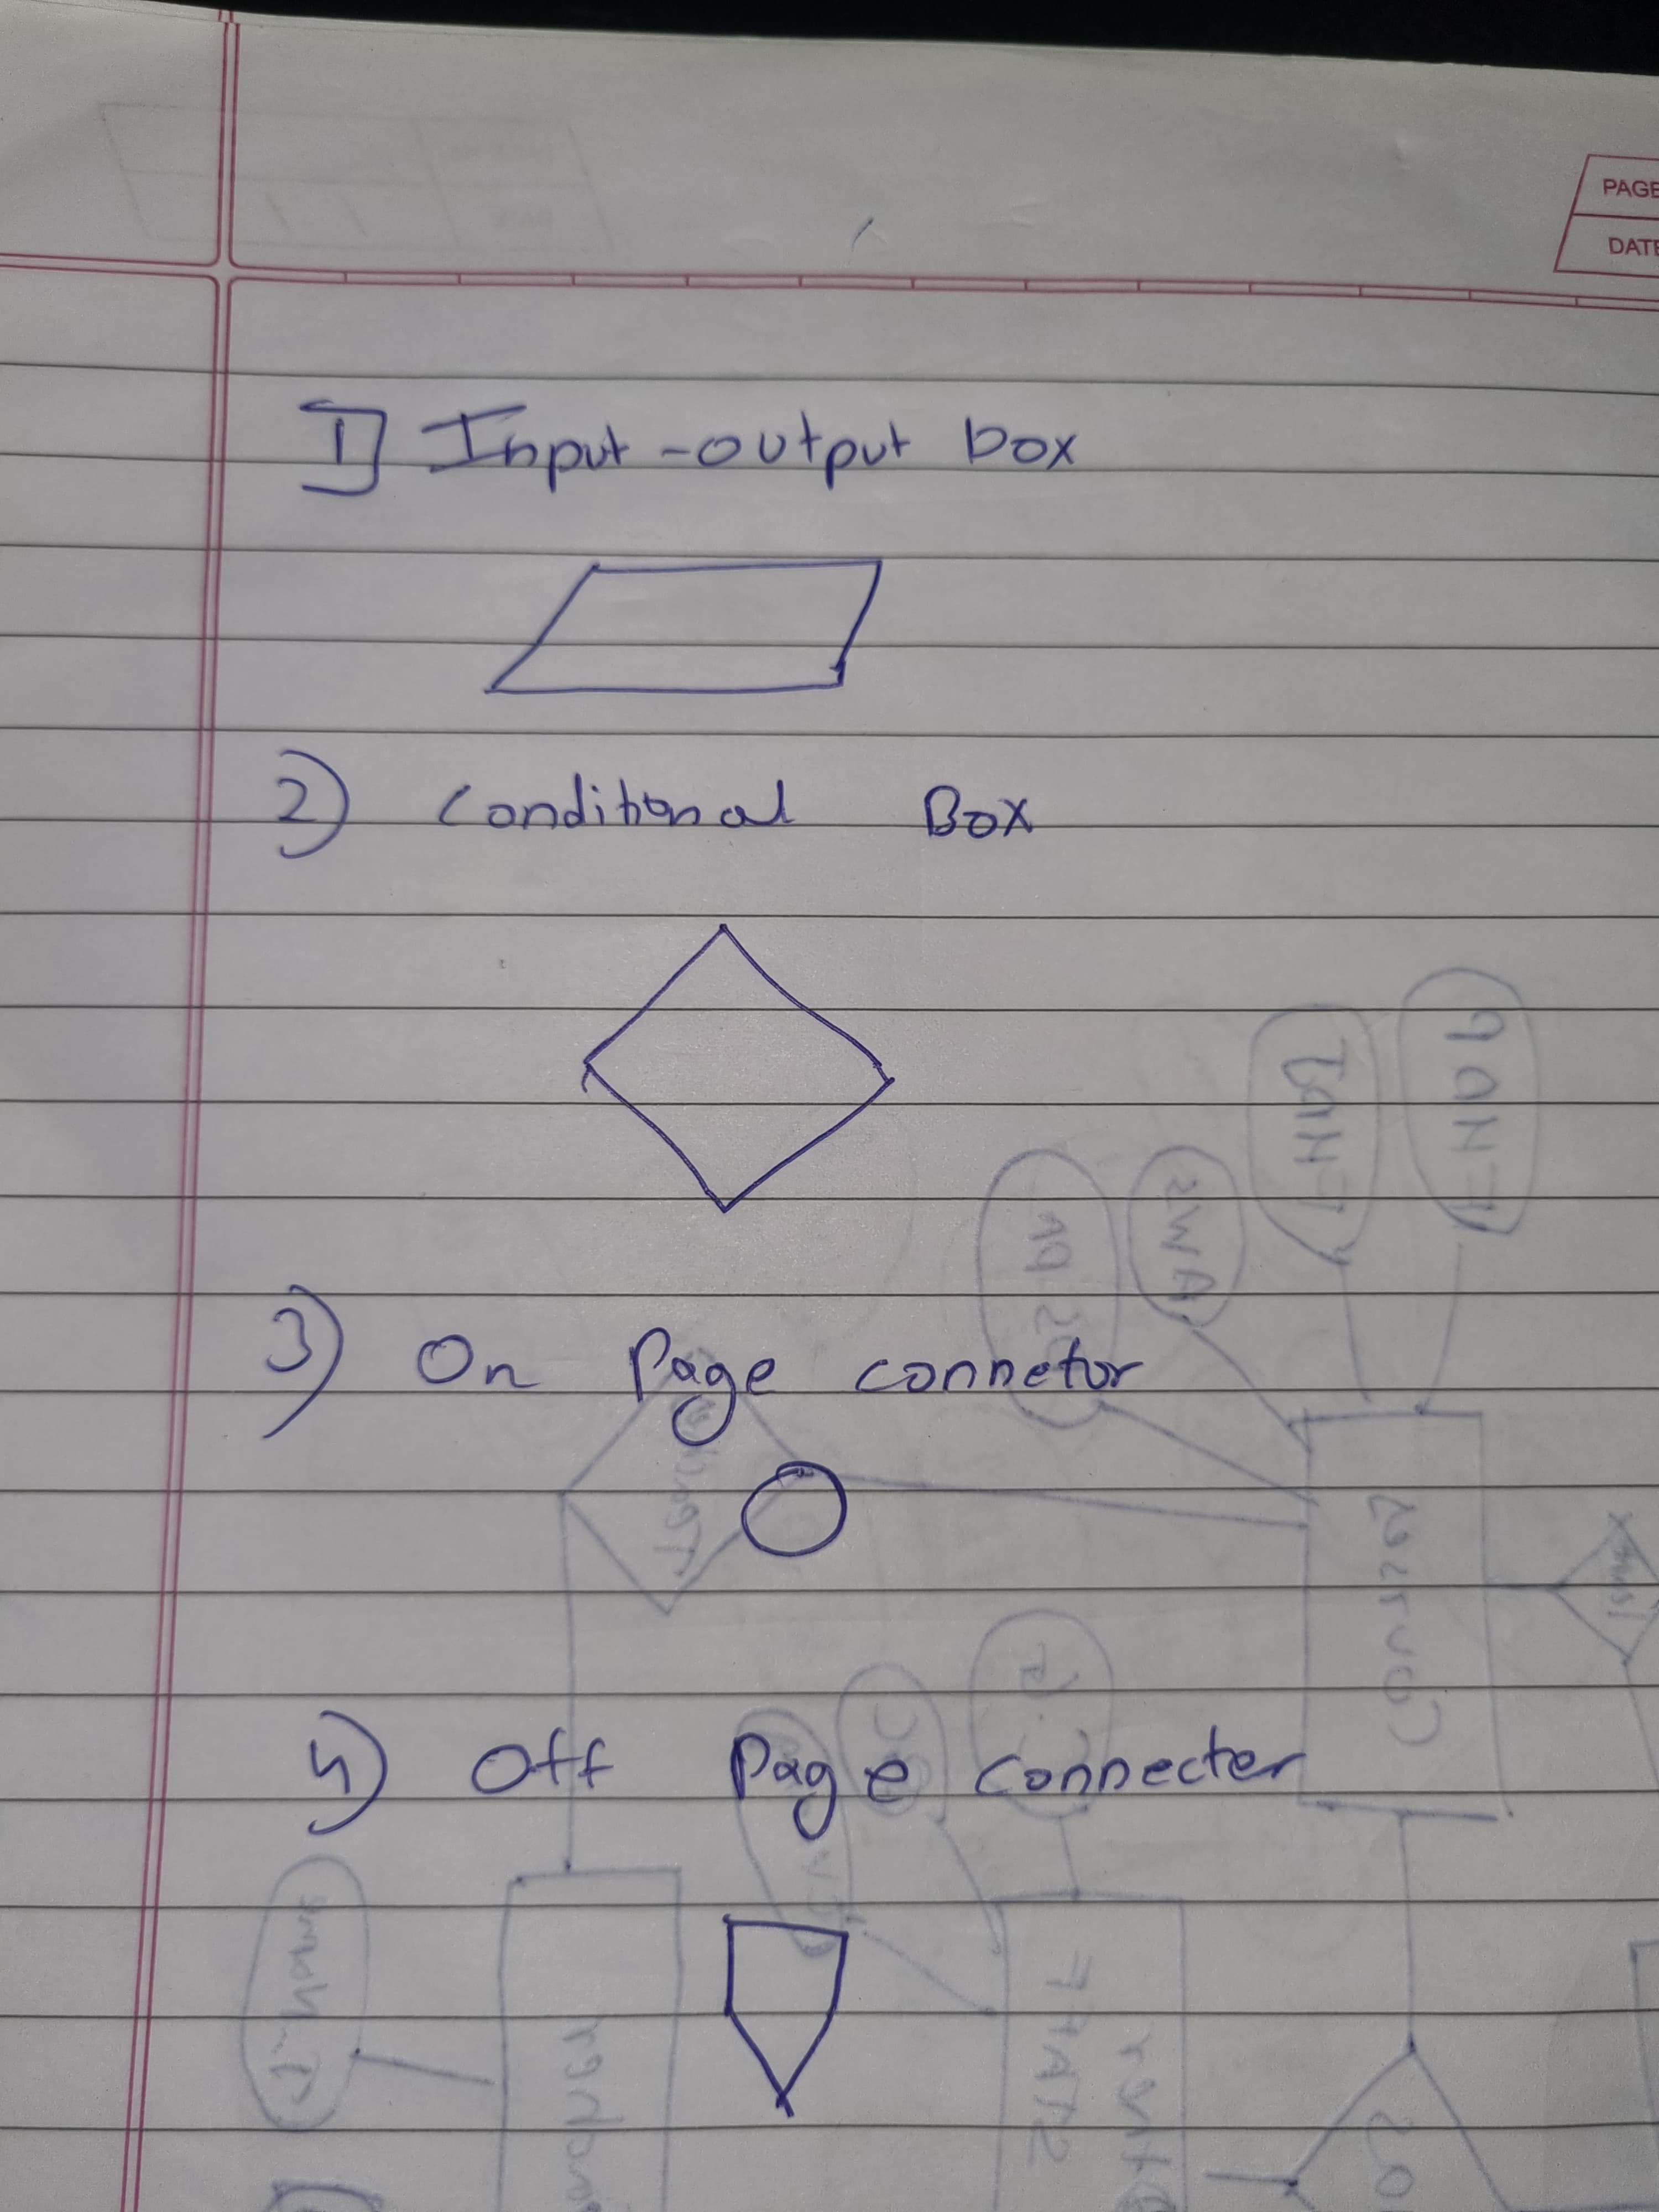 PAGE
DATE
1] Input-output box
2) Conditional Box
3) On Page connetor
4) Off Page connecter